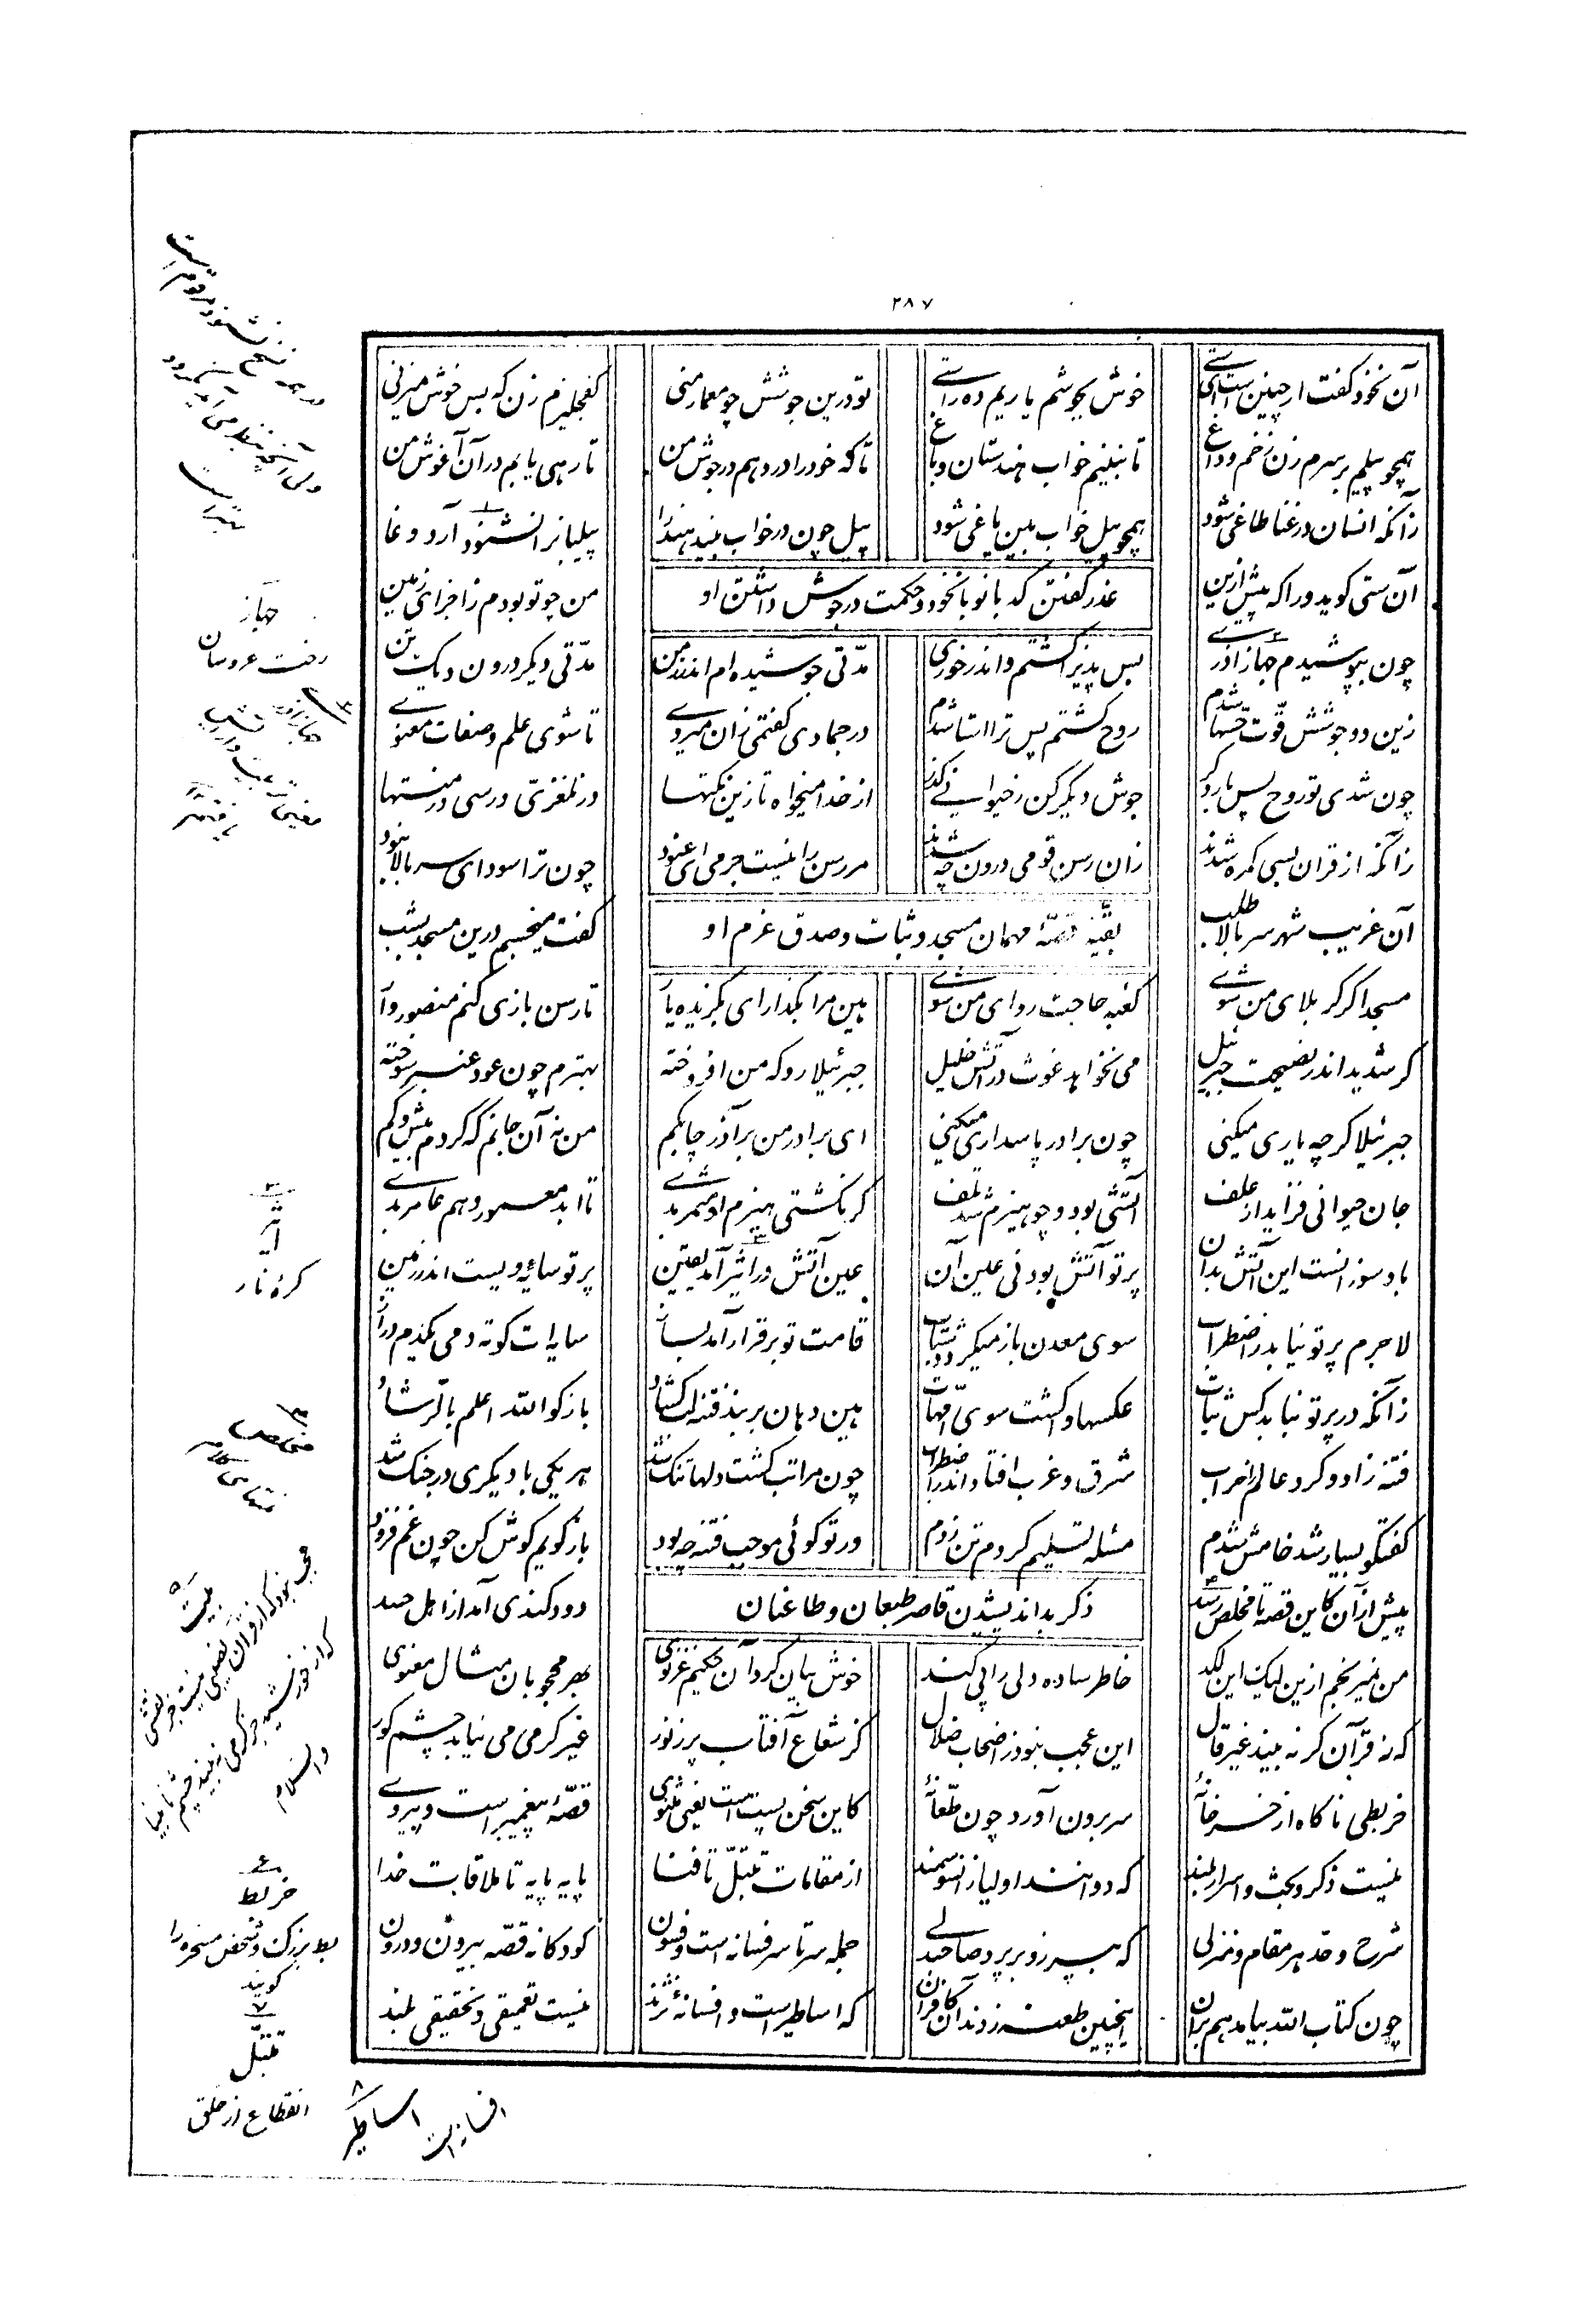 ۲۸۷
آن نخود گفت ار چنین است ای ستی خوش بجوشم یاریم ده راستی تو درین جوشش چو معمار منی کفچلیزم زن که بس خوش میزنی
همچو پیلم بر سرم زن زخم و داغ تا نبینم خواب هندستان و باغ تا که خود را در دهم در جوش من تا رهی یابم در آن آغوش من
زآنکه انسان در غنا طاغی شود همچو پیل خواب بین یاغی شود پیل چون در خواب بیند هند را پیلبانرا نشنود آرد وغا
عذر گفتن کدبانو با نخود و حکمت در جوش داشتن او
آن ستی گوید ورا که پیش ازین من چو تو بودم ز اجزای زمین
چون بپوشیدم جهاز آذری پس پذیرا گشتم و اندر خوری مدّتی جوشیده‌ام اندر زمن مدّتی دیگر درون دیگ تن
زین دو جوشش قوّت حسها شدم روح گشتم پس ترا استا شدم در جمادی گفتمی زان میروی تا شوی علم و صفات معنوی
چون شدی تو روح پس بار دگر جوش دیگر کن ز حیوانی گذر از خدا میخواه تا زین نکتها در نلغزی و رسی در منتها
زآنکه از قران بسی گمره شدند زان رسن قومی درون چه شدند مر رسن را نیست جرمی ای عنود چون ترا سودای سر بالا نبود
بقیّه قصّهٔ مهمان مسجد و ثبات و صدق عزم او
آن غریب شهر سر بالا طلب گفت میخسبم درین مسجد بشب
مسجدا گر کربلای من شوی کعبه حاجت روای من شوی هین مرا بگذار ای بگزیده یار تا رسن بازی کنم منصوروار
گر شدید اندر نصیحت جبرئیل می نخواهد غوث در آتش خلیل جبرئیلا رو که من افروخته بهترم چون عود عنبر سوخته
جبرئیلا گرچه یاری میکنی چون برادر پاسداری میکنی ای برادر من بر آذر چابکم من نه آن جانم که گردم بیش و کم
جان حیوانی فزاید از علف آتشی بود و چو هیزم شد تلف گر نگشتی هیزم او مثمر بدی تا ابد معمور و هم عامر بدی
باد سوزانست این آتش بدان پرتو آتش بود نی عین آن عین آتش در اثیر آمد یقین پرتو سایهٔ ویست اندر زمین
لاجرم پرتو نپاید ز اضطراب سوی معدن باز میگردد شتاب قامت تو برقرار آمد بساز سایه‌ات کوته دمی یکدم دراز
زآنکه در پرتو نیابد کس ثبات عکسها وا گشت سوی امّهات هین دهان بربند فتنه لب گشاد باز گو الله اعلم بالرّشاد
فتنه زاد و کرد عالم را خراب شرق و غرب افتاد اندر اضطراب چون مراتب گشت و لها تنگ شد هر یکی با دیگری در جنگ شد
گفتگو بسیار شد خامش شدم مسئله تسلیم کردم تن زدم ور تو گوئی موجب فتنه چه بود باز گویم گوش کن چون غم فزود
ذکر بد اندیشیدن قاصر طبعان و طاغیان
پیش از آن کاین قصه تا مخلص رسد دود گندی آمد از اهل حسد
من نمیرنجم ازین لیک این لگد خاطر ساده دلی را پی کند خوش بیان کرد آن حکیم غزنوی بهر محجوبان مثال معنوی
که ز قرآن گر نه بیند غیر قال این عجب نبود ز اصحاب ضلال کز شعاع آفتاب پر ز نور غیر گرمی می نیابد چشم کور
خربطی ناگاه از خر خانهٔ سر برون آورد چون طعّانهٔ کاین سخن پست است یعنی مثنوی قصّهٔ پیغمبر است و پیروی
نیست ذکر و بحث و اسرار بلند که دوانند اولیا زانسو سمند از مقامات تبتّل تا فنا پایه پایه تا ملاقات خدا
شرح و حد هر مقام و منزلی که بپر زو بر پرد صاحبدلی جمله سر تا سر فسانه است و فسون کودکانه قصّه بیرون و درون
چون کتاب الله بیامد هم بران اینچنین طعنه زدند آن کافران که اساطیر است و افسانهٔ نژند نیست تعمیقی و تحقیقی بلند
جهاز
رخت عروسان
۳
اثیر
کره نار
۴
مخلص
۵
بیت
عجب نبود که از قرآن نصیبی نیست جز نقشی
که از خورشید جز گرمی نبیند چشم نابینا
والسلام
۶
خربط
بط بزرگ و شخص مسخره را
گویند
۷
تبتّل
انقطاع از خلق
۸
اساطیر
افسانه است